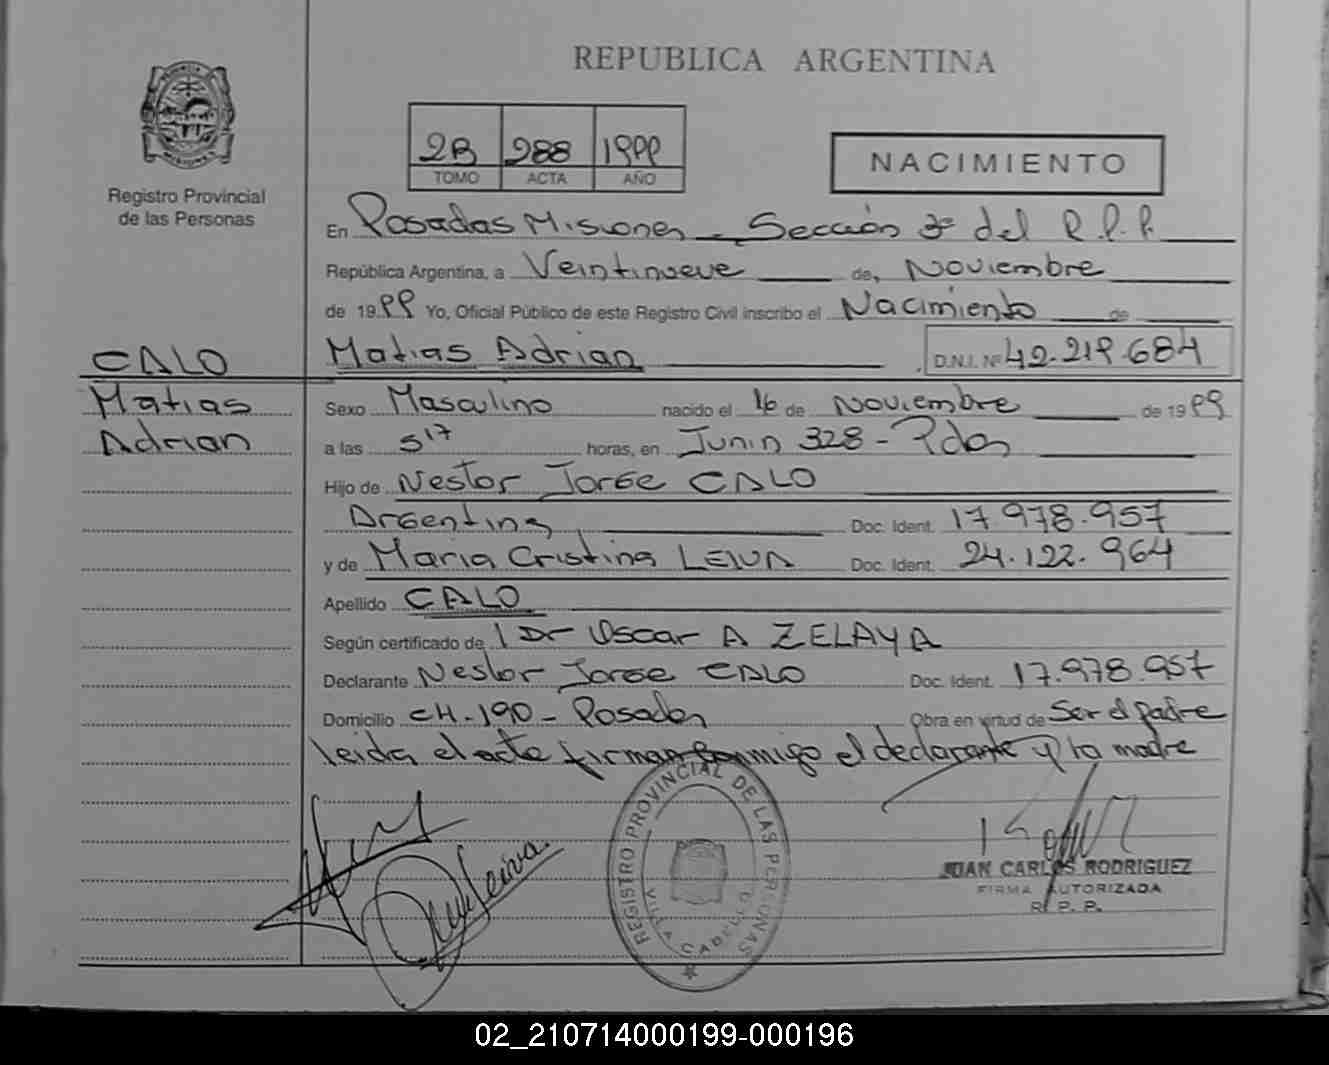 REPUBLICA ARGENTINA
2B 288 1999
TOMO ACTA AÑO
NACIMIENTO
Registro Provincial
de las Personas
En Posadas Misiones - Sección 3º del R.P.P.
República Argentina, a Veintinueve de, Noviembre
de 1999 Yo, Oficial Público de este Registro Civil inscribo el Nacimiento de
CALO
Matias Adrian D.N.I. Nº 42.219.684
Matias
Sexo Masculino nacido el 16 de Noviembre de 1999
Adrian
a las 5 17 horas, en Junin 328 - Pdas
Hijo de Nestor Jorge CALO
Argentina Doc. Ident. 17.978.957
y de Maria Cristina LEIVA Doc. Ident. 24.122.964
Apellido CALO
Según certificado de l Dr Oscar A ZELAYA
Declarante Nestor Jorge CALO Doc. Ident. 17.978.957
Domicilio CH. 190 - Posadas Obra en virtud de Ser el padre
leida el acta firman conmigo el declarante y la madre
REGISTRO PROVINCIAL DE LAS PERSONAS
VILLA CABELLO
Leiva
JUAN CARLOS RODRIGUEZ
FIRMA AUTORIZADA
R. P. P.
02_210714000199-000196